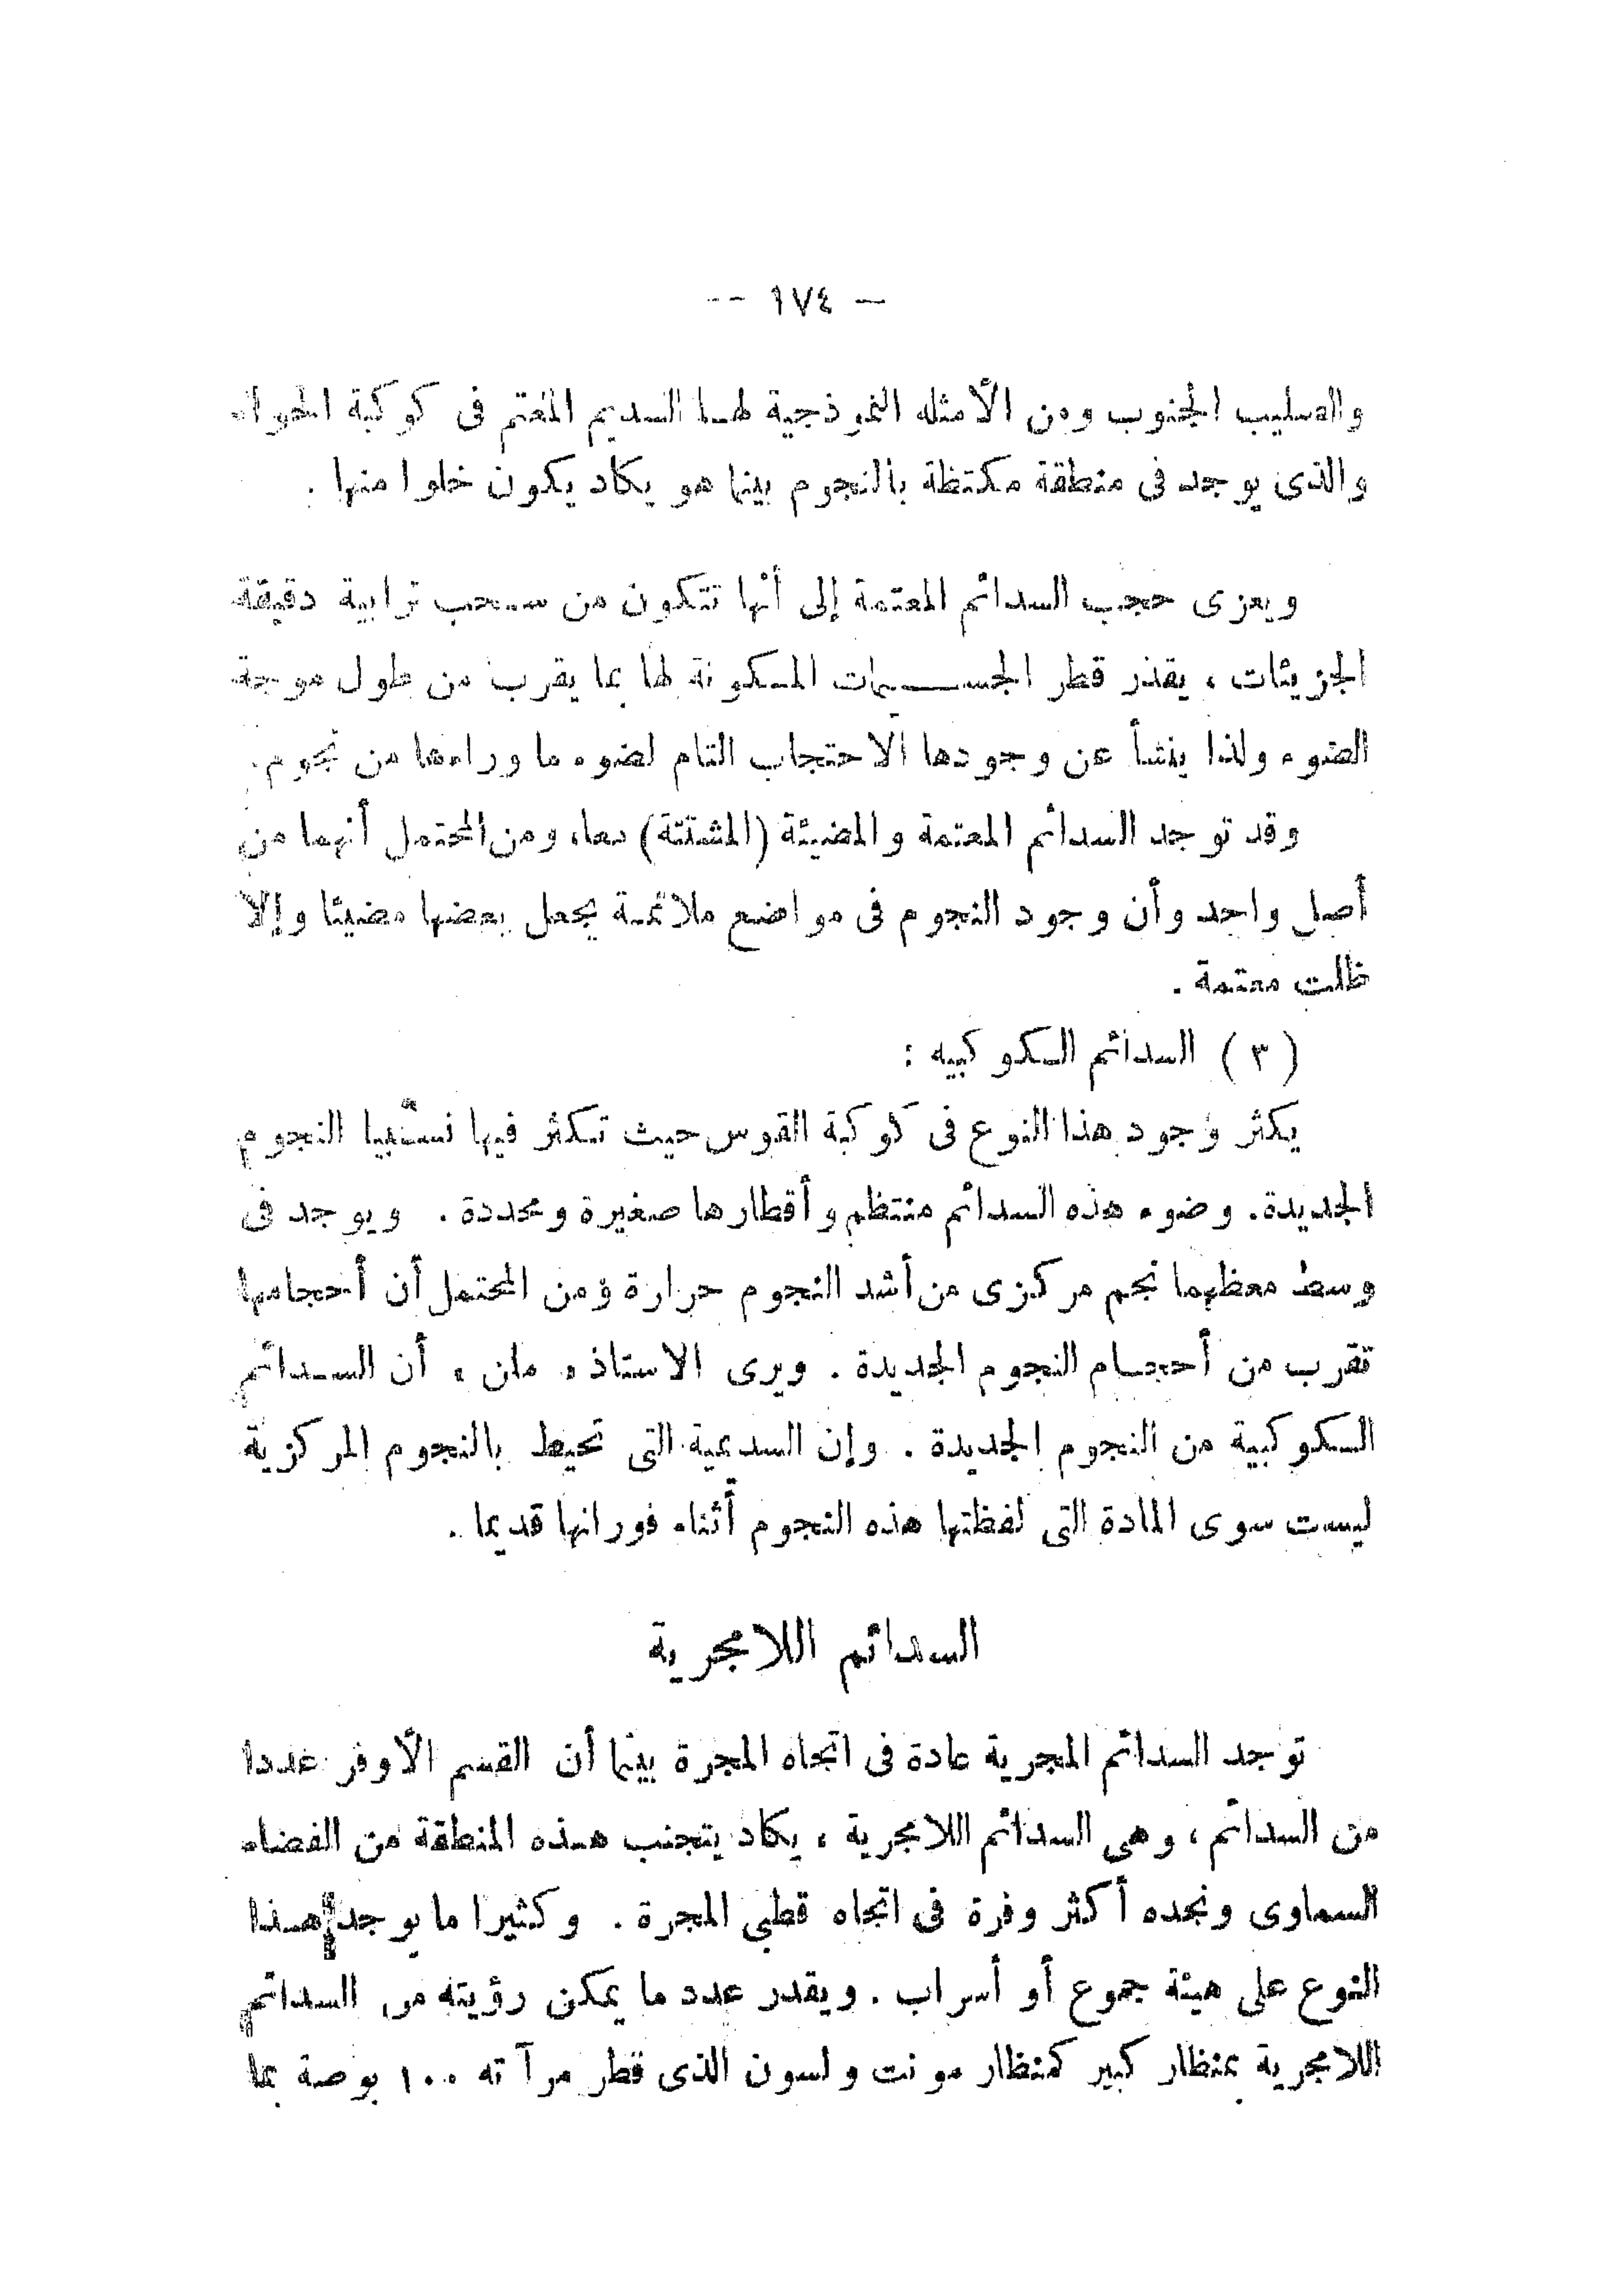 — ١٧٤ —
والصليب الجنوب ومن الأمثله النموذجية لها السديم المعتم فى كوكبة الحواء
والذى يوجد فى منطقة مكتظة بالنجوم بينما هو يكاد يكون خلوا منها .
ويعزى حجب السدائم المعتمة إلى أنها تتكون من سحب ترابية دقيقة
الجزيئات ، يقدر قطر الجسيمات المكونة لها بما يقرب من طول موجة
الضوء ولذا ينشأ عن وجودها الاحتجاب التام لضوء ما وراءها من نجوم .
وقد توجد السدائم المعتمة والمضيئة (المشتتة) معا، ومن المحتمل أنهما من
أصل واحد وأن وجود النجوم فى مواضع ملائمة يجعل بعضها مضيئا وإلا
ظلت معتمة .
( ٣ ) السدائم الكوكبيه :
يكثر وجود هذا النوع فى كوكبة القوس حيث تكثر فيها نسبيا النجوم
الجديدة . وضوء هذه السدائم منتظم وأقطارها صغيرة ومحددة . ويوجد فى
وسط معظمها نجم مركزى من أشد النجوم حرارة ومن المحتمل أن أحجامها
تقرب من أحجام النجوم الجديدة . ويرى الاستاذ « ملن » أن السدائم
الكوكبية من النجوم الجديدة . وإن السدمية التى تحيط بالنجوم المركزية
ليست سوى المادة التى لفظتها هذه النجوم أثناء فورانها قديما .
السدائم اللامجرية
توجد السدائم المجرية عادة فى اتجاه المجرة بينما أن القسم الأوفر عددا
من السدائم ، وهى السدائم اللامجرية ، يكاد يتجنب هذه المنطقة من الفضاء
السماوى ونجده أكثر وفرة فى اتجاه قطبى المجرة . وكثيرا ما يوجد هذا
النوع على هيئة جموع أو أسراب . ويقدر عدد ما يمكن رؤيته من السدائم
اللامجرية بمنظار كبير كمنظار مونت ولسون الذى قطر مرآته ١٠٠ بوصة بما